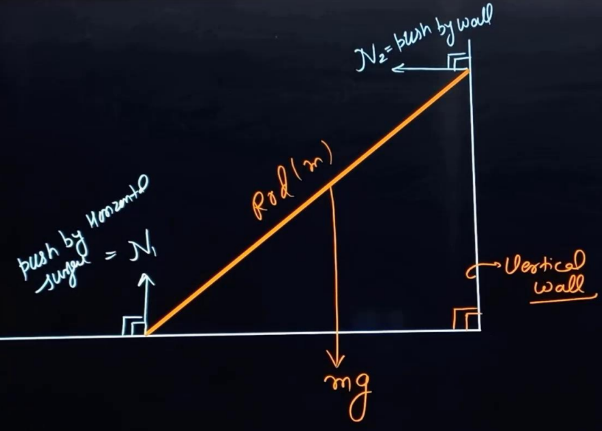 N₂ = push by wall
Rod (m)
push by Horizontal
= N₁
Vertical
wall
mg